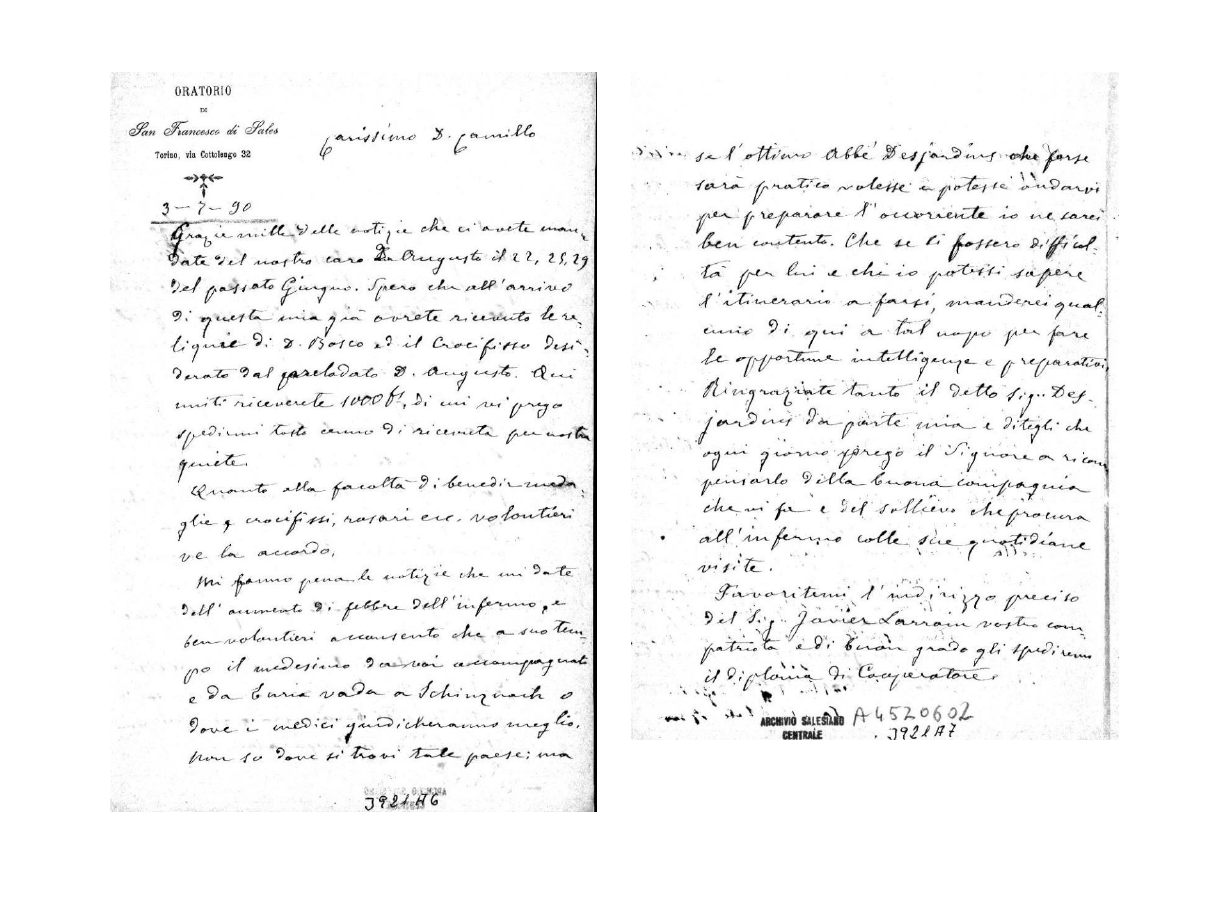 ORATORIO
DI
San Francesco di Sales
Torino, via Cottolengo 32
Carissimo D. Camillo
3-7-90
Grazie mille delle notizie che ci avete man-
date del nostro caro D. Augusto il 22, 25, 29
del passato Giugno. Spero che all'arrivo
di questa mia già avrete ricevuto le re-
liquie di D. Bosco ed il Crocifisso desi-
derato dal prelodato D. Augusto. Qui
uniti riceverete 1000 fr, di cui vi prego
spedirmi tosto cenno di ricevuta per nostra
quiete.
Quanto alla facoltà di benedir meda-
glie, crocifissi, rosari ecc. volontieri
ve la accordo.
Mi fanno pena le notizie che mi date
dell'aumento di febbre dell'infermo, e
ben volontieri acconsento che a suo tem-
po il medesimo da voi accompagnato
e da Curia vada a Schinznach o
dove i medici giudicheranno meglio.
Non so dove si trovi tale paese; ma
J921A6
se l'ottimo Abbé Desjardins che forse
sarà pratico volesse e potesse andarvi
per preparare l'occorrente io ne sarei
ben contento. Che se vi fossero difficol-
tà per lui e ch'io potessi sapere
l'itinerario a farsi, manderei qual-
cuno di qui a tal uopo per fare
le opportune intelligenze e preparativi.
Ringraziate tanto il detto Sig. Des-
jardins da parte mia e ditegli che
ogni giorno prego il Signore a ricom
pensarlo della buona compagnia
che vi fa e del sollievo che procura
all'infermo colle sue quotidiane
visite.
Favoritemi l'indirizzo preciso
del Sig. Javier Larrain vostro com-
patriota e di buon grado gli spediremo
il diploma di Cooperatore.
ARCHIVIO SALESIANO
CENTRALE
A4520602
J921A7